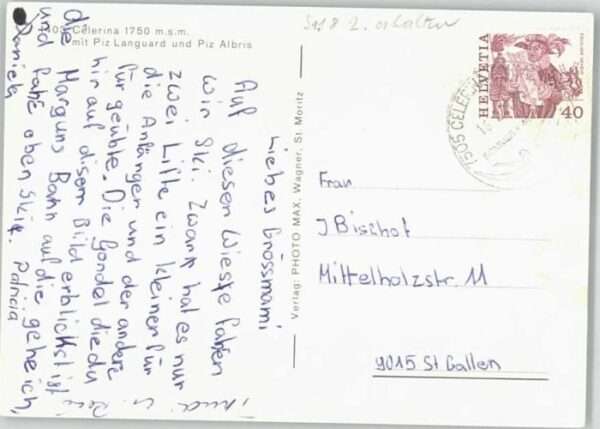 Celerina 1750 m.s.m.
mit Piz Languard und Piz Albris
2. erhalten
HELVETIA
40
7505 CELERINA
Verlag: PHOTO MAX. Wagner, St. Moritz
Liebes Grossmami
Auf diesen Wiese fahren
wir Ski. Zwarr hat es nur
zwei Lifte ein kleiner für
die Anfänger und der andere
für geübte. Die Gondel die du
hir auf disem Bild erblickst ist
die Marguns Bahn auf die gehe ich,
und fahre oben Skie. Patricia
Daniela
Frau
J Bischof
Mittelholzstr. 11
9015 St Gallen